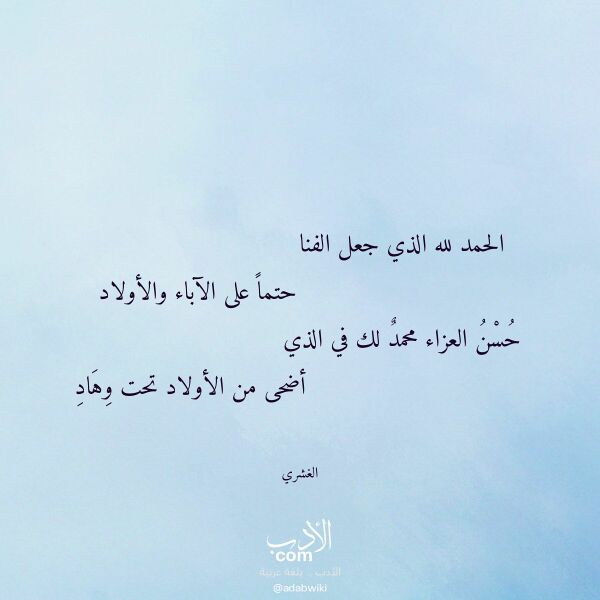 الحمد لله الذي جعل الفنا
حتماً على الآباء والأولاد
حُسْنُ العزاء محمدٌ لك في الذي
أضحى من الأولاد تحت وِهَادِ
الغشري
الأدب
com
الأدب .. بلغة عربية
@adabwiki